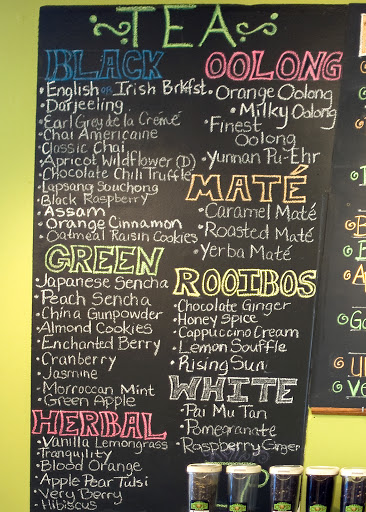 TEA
BLACK
• English or Irish Brkfst.
• Darjeeling
• Earl Grey de la Crémé
• Chai Americaine
• Classic Chai
• Apricot Wildflower (D)
• Chocolate Chili Truffle
• Lapsang Souchong
• Black Raspberry
• Assam
• Orange Cinnamon
• Oatmeal Raisin Cookies
GREEN
• Japanese Sencha
• Peach Sencha
• China Gunpowder
• Almond Cookies
• Enchanted Berry
• Cranberry
• Jasmine
• Morroccan Mint
• Green Apple
HERBAL
• Vanilla Lemongrass
• Tranquility
• Blood Orange
• Apple Pear Tulsi
• Very Berry
• Hibiscus
OOLONG
• Orange Oolong
• Milky Oolong
• Finest
Oolong
• Yunnan Pu-Ehr
MATÉ
• Caramel Maté
• Roasted Maté
• Yerba Maté
ROOIBOS
• Chocolate Ginger
• Honey Spice
• Cappuccino Cream
• Lemon Souffle
• Rising Sun
WHITE
• Pai Mu Tan
• Pomegranate
• Raspberry Ginger